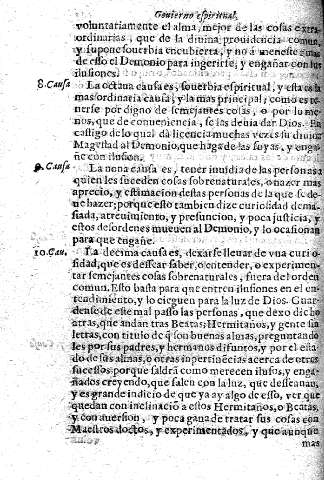 Gouierno espiritual,
voluntariamente el alma, mejor de las cosas extra-
ordinarias, que de la diuina prouidencia comun,
y supone souerbia encubierta, y no a menester mas
de esso el Demonio para ingerirse, y engañar con sus
ilusiones.
8. Causa La octaua causa es, souerbia espiritual, y esta es la
mas ordinaria causa, y la mas principal; como es te-
nerse por digno de semejantes cosas, o por lo me-
nos, que de conueniencia, se las deuia dar Dios. En
castigo de lo qual dà licencia muchas vezes su diuina
Magestad al Demonio, que haga de las suyas, y enga-
ñe con ilusion.
9. Causa La nona causa es, tener inuidia de las personas a
quien les suceden cosas sobrenaturales, o hazer mas
aprecio, y estimacion destas personas de la que se de-
ue hazer; porque esto tambien dize curiosidad dema-
siada, atreuimiento, y presuncion, y poca justicia, y
estos desordenes mueuen al Demonio, y lo ocasionan
para que engañe.
10. Cau. La decima causa es, dexarse lleuar de vna curio-
sidad, que es dessear saber, o entender, o experimen-
tar semejantes cosas sobrenaturales, fuera del orden
comun. Esto basta para que entren ilusiones en el en-
tendimiento, y lo cieguen para la luz de Dios. Guar-
dense de este mal passo las personas, que dexo dicho
atras, que andan tras Beatas, Hermitaños, y gente sin
letras, con titulo de q̃ son buenas almas, preguntando
les por sus padres, y hermanos difuntos, y por el esta-
do de sus almas, o otras inpertinēcias acerca de otros
sucessos: porque saldrà como merecen ilusos, y enga-
ñados creyendo, que salen con la luz, que desseauan,
y es grande indicio de que ya ay algo de esso, ver que
quedan con inclinaciō a estos Hermitaños, o Beatas,
y con auersion, y poca gana de tratar sus cosas con
Maestros doctos, y experimentados, y que aunque
mas